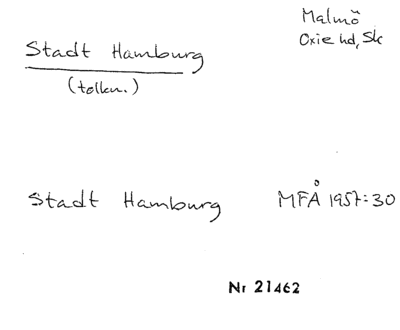 Malmö
Oxie hd, Sk
Stadt Hamburg
(tolkn.)
Stadt Hamburg MFÅ 1957:30
Nr 21462